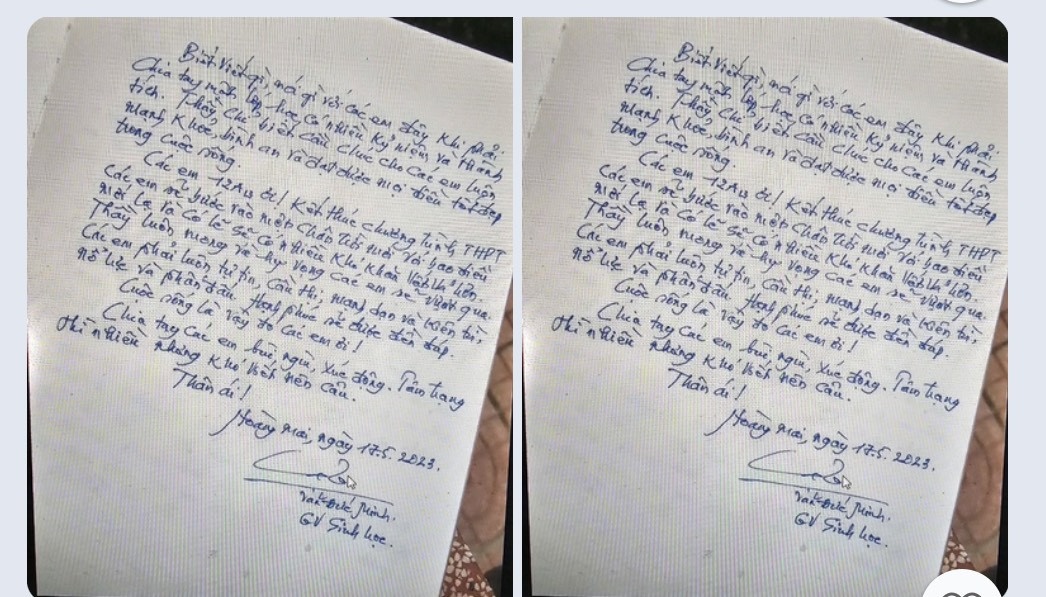 Biết viết gì, nói gì với các em đây khi phải
Chia tay một lớp học có nhiều kỷ niệm và thành
tích. Thầy chỉ biết cầu chúc cho các em luôn
mạnh khỏe, bình an và đạt được mọi điều tốt đẹp
trong cuộc sống.
Các em 12A13 ơi! Kết thúc chương trình THPT
Các em sẽ bước vào một chân trời mới với bao điều
mới lạ và có lẽ sẽ có nhiều khó khăn vất vả hơn.
Thầy luôn mong và hy vọng các em sẽ vượt qua.
Các em phải luôn tự tin, cầu thị, mạnh dạn và kiên trì,
nỗ lực và phấn đấu. Hạnh phúc sẽ được đền đáp.
Cuộc sống là vậy đó các em ơi!
Chia tay các em bùi ngùi, xúc động. Tâm trạng
thì nhiều nhưng khó viết nên câu.
Thân ái!
Hoàng Mai, ngày 17.5.2023.
Đức Minh.
GV Sinh học.
Biết viết gì, nói gì với các em đây khi phải
Chia tay một lớp học có nhiều kỷ niệm và thành
tích. Thầy chỉ biết cầu chúc cho các em luôn
mạnh khỏe, bình an và đạt được mọi điều tốt đẹp
trong cuộc sống.
Các em 12A13 ơi! Kết thúc chương trình THPT
Các em sẽ bước vào một chân trời mới với bao điều
mới lạ và có lẽ sẽ có nhiều khó khăn vất vả hơn.
Thầy luôn mong và hy vọng các em sẽ vượt qua.
Các em phải luôn tự tin, cầu thị, mạnh dạn và kiên trì,
nỗ lực và phấn đấu. Hạnh phúc sẽ được đền đáp.
Cuộc sống là vậy đó các em ơi!
Chia tay các em bùi ngùi, xúc động. Tâm trạng
thì nhiều nhưng khó viết nên câu.
Thân ái!
Hoàng Mai, ngày 17.5.2023.
Đức Minh.
GV Sinh học.